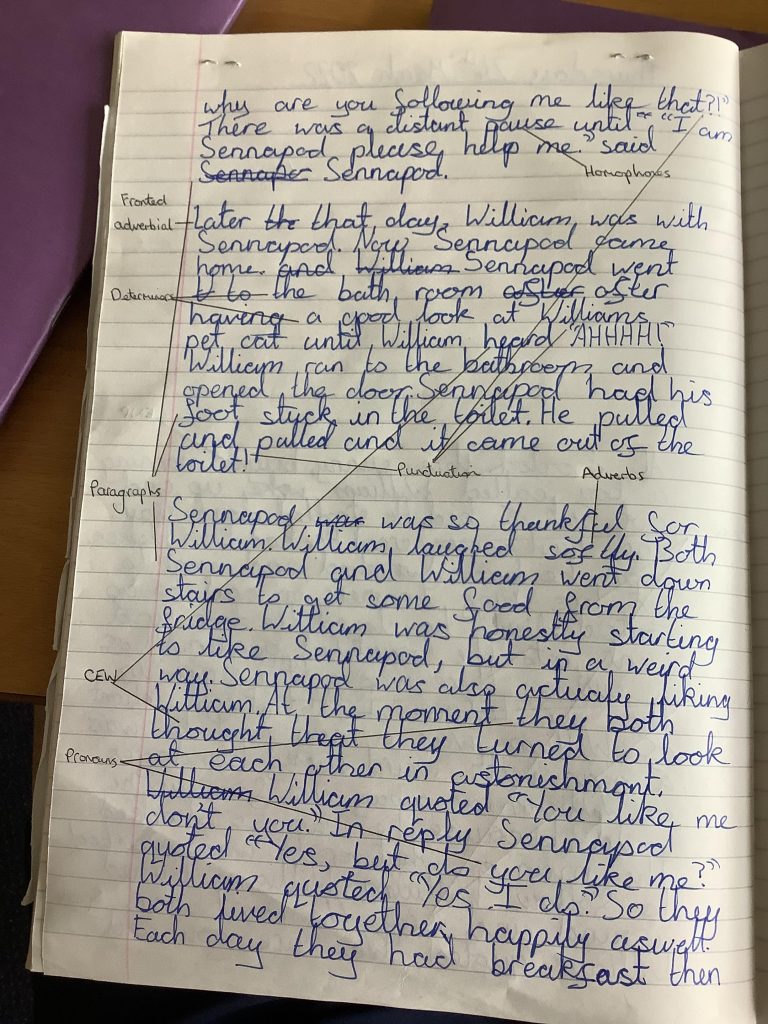 why are you following me like that?!"
There was a distant pause until "I am
Sennapod please, help me." said
Sennapod.
Homophones
Fronted
adverbial
Later that day, William, was with
Sennapod. Now Sennapod came
home. Sennapod went
Determiners
to the bath room after
having a good look at Williams
pet cat until William heard "AHHHH!"
William ran to the bathroom and
opened the door. Sennapod had his
foot stuck in the toilet. He pulled
and pulled and it came out of the
toilet!
Punctuation
Adverbs
Paragraphs
Sennapod was so thankful for
William. William laughed softly. Both
Sennapod and William went down
stairs to get some food from the
fridge. William was honestly starting
to like Sennapod, but in a weird
way. Sennapod was also actualy liking
CEW
William. At the moment they both
thought that they turned to look
Pronouns
at each other in astonishment.
William quoted "You like me
don't you." In reply Sennapod
quoted "Yes, but do you like me?"
William quoted, "Yes I do." So they
both lived together, happily aswell.
Each day they had breakfast then